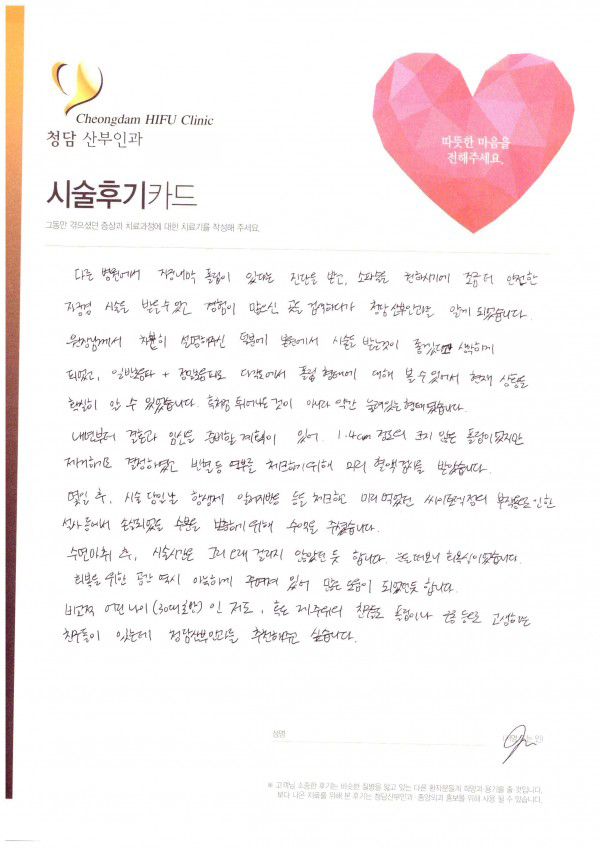 Cheongdam HIFU Clinic
청담 산부인과
따뜻한 마음을
전해주세요.
시술후기카드
그동안 겪으셨던 증상과 치료과정에 대한 치료기를 작성해 주세요.
다른 병원에서 자궁내막 폴립이 있다는 진단을 받고, 소파술을 권하시기에 조금 더 안전한
자궁경 시술을 받을 수 있고 경험이 많으신 곳을 검색하다가 청담산부인과를 알게 되었습니다.
원장님께서 차분히 설명해주신 덕분에 본원에서 시술을 받는것이 좋겠다고 생각하게
되었고, 일반초음파 + 정밀초음파로 다각도에서 폴립 형태에 대해 볼 수 있어서 현재 상황을
확실히 알 수 있었습니다. 혹처럼 튀어나온 것이 아니라 약간 눌려있는 형태였습니다.
내년부터 결혼과 임신을 준비할 계획이 있어. 1.4cm 정도의 크지 않은 폴립이었지만
제거하기로 결정하였고 빈혈 등 여부를 체크하기 위해 미리 혈액검사를 받았습니다.
몇일 후, 시술 당일날 항생제 알레지반응 등을 체크하고 미리 먹었던 싸이토텍정의 부작용으로 인한
설사 등에서 손실되었을 수분을 보충하기 위해 수액을 주셨습니다.
수면마취 후, 시술시간은 그리 오래 걸리지 않았던 듯 합니다. 눈을 떠보니 회복실이었습니다.
회복을 위한 공간 역시 아늑하게 꾸며져 있어 많은 도움이 되었던듯 합니다.
비교적 어린 나이(30대 초반)인 저도, 혹은 제 주위의 친구들도 폴립이나 근종 등으로 고생하는
친구들이 있는데 청담산부인과를 추천해주고 싶습니다.
성명
※ 고객님 소중한 후기는 비슷한 질병을 앓고 있는 다른 환자분들께 희망과 용기를 줄 것입니다.
보다 나은 치료를 위해 본 후기는 청담산부인과·중앙외과 홍보를 위해 사용 될 수 있습니다.